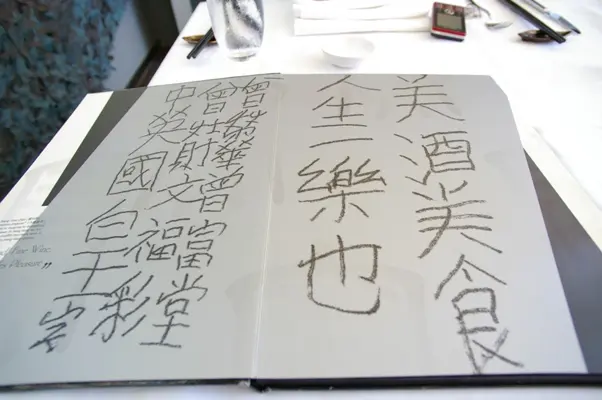 美酒美食
人生一樂也
曾發榮曾富堂
曾壯財文福彩
中英國白王字
Fine Wine
Pleasure"